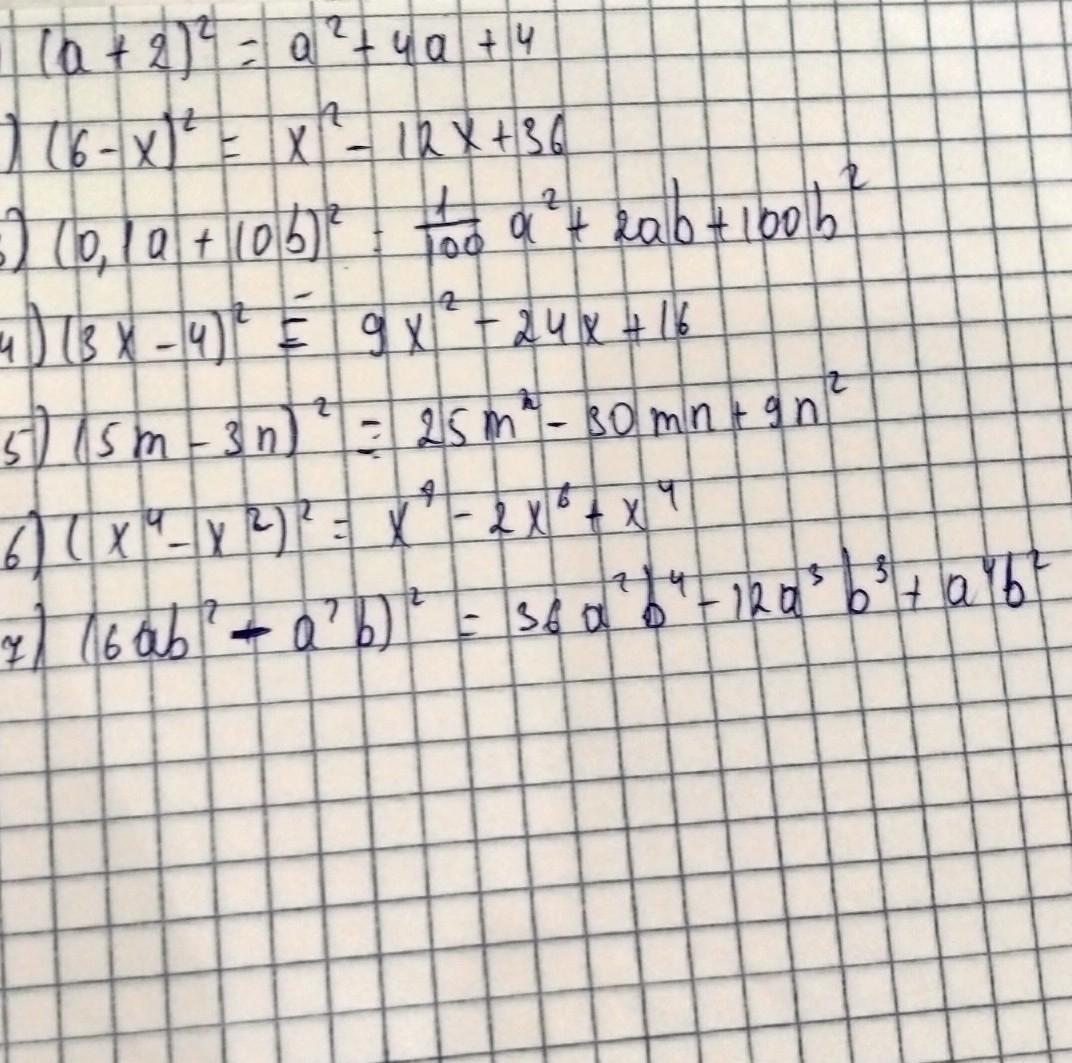 (a + 2)² = a² + 4a + 4
) (6 - x)² = x² - 12x + 36
3) (0,1a + 10b)² = 1/100 a² + 2ab + 100b²
4) (3x - 4)² = 9x² - 24x + 16
5) (5m - 3n)² = 25m² - 30mn + 9n²
6) (x⁴ - x²)² = x⁸ - 2x⁶ + x⁴
7) (6ab² - a²b)² = 36a²b⁴ - 12a³b³ + a⁴b²